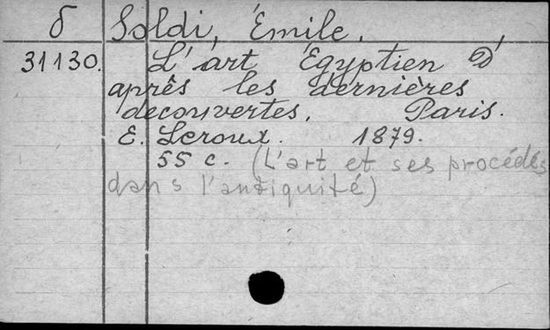 δ Soldi, Émile.
31130. L'art Égyptien d'
après les dernières
decouvertes. Paris.
E. Leroux. 1879.
55 c. (L'art et ses procédés
dans l'antiquité)